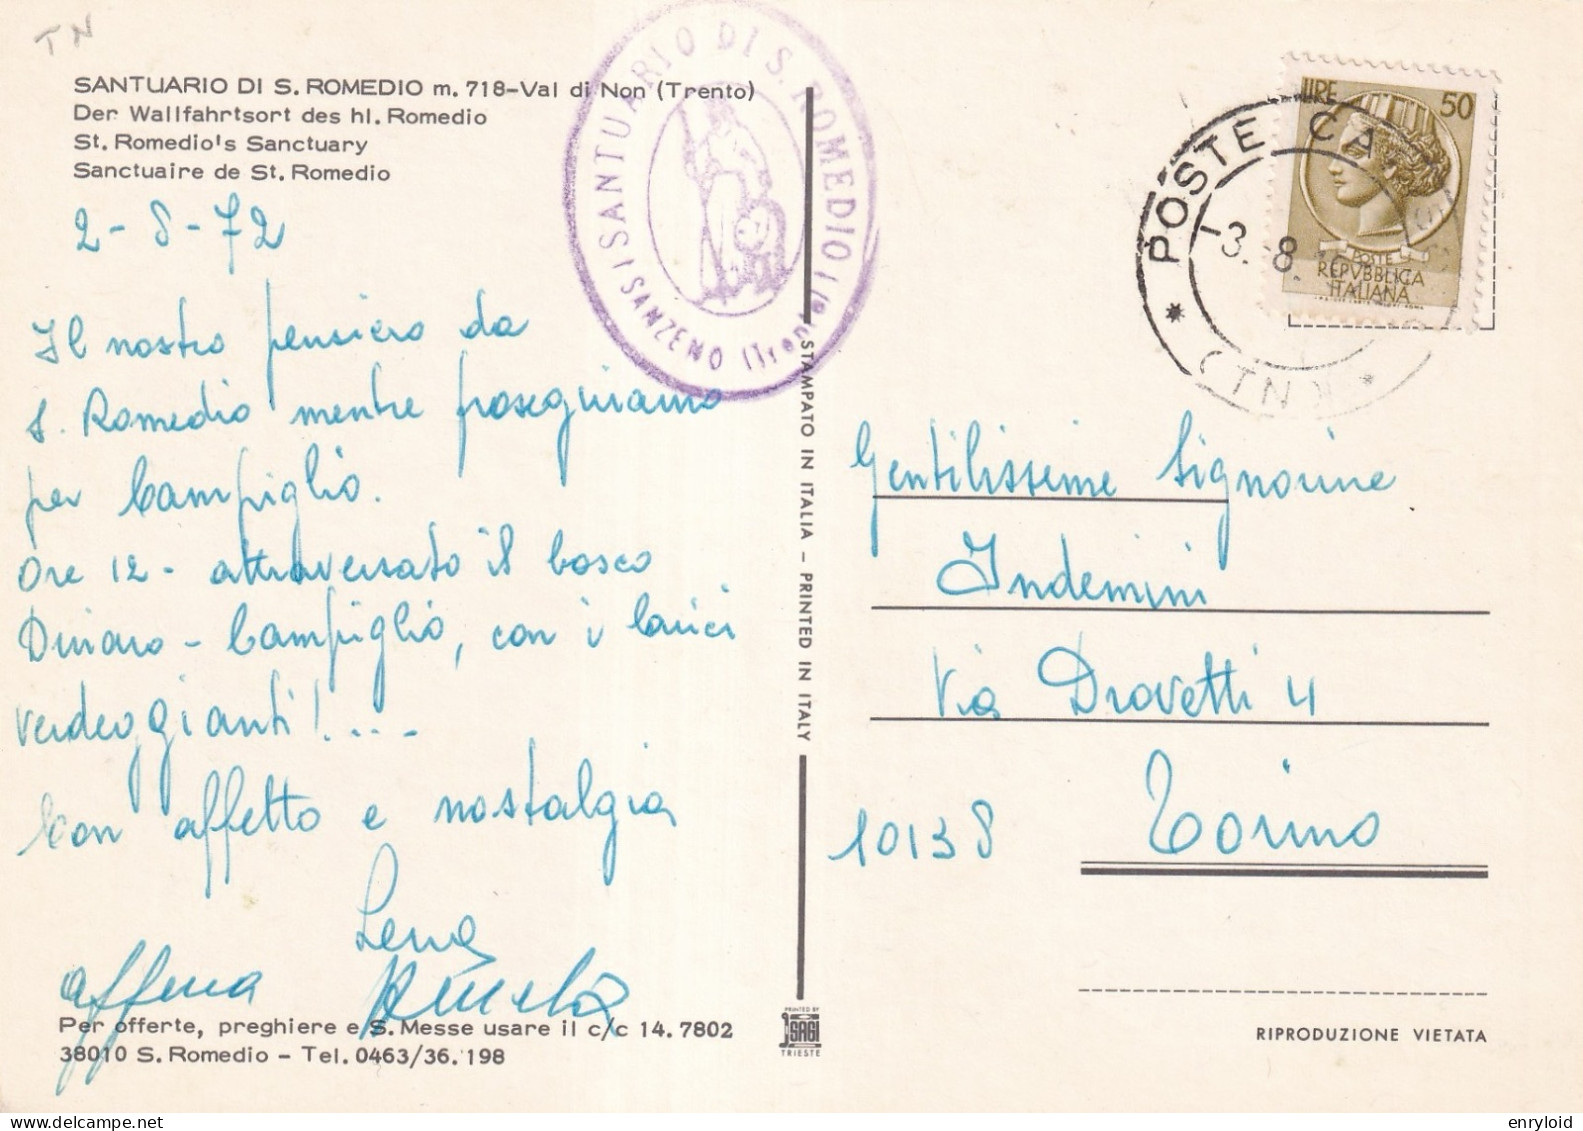 TN
SANTUARIO DI S. ROMEDIO m. 718-Val di Non (Trento)
Der Wallfahrtsort des hl. Romedio
St. Romedio's Sanctuary
Sanctuaire de St. Romedio
SANTUARIO DI S. ROMEDIO
SANZENO (Trento)
2-8-72
Il nostro pensiero da
S. Romedio mentre proseguiamo
per Campiglio.
Ore 12 - attraversato il bosco
Dimaro - Campiglio, con i larici
verdeggianti!....
Con affetto e nostalgia
Lena
affma
Per offerte, preghiere e S. Messe usare il c/c 14.7802
38010 S. Romedio - Tel. 0463/36.198
STAMPATO IN ITALIA - PRINTED IN ITALY
PRINTED BY
SAGI
TRIESTE
LIRE 50
POSTE
REPVBBLICA
ITALIANA
* POSTE CA
-3.8.
(TN) *
Gentilissime Signorine
Indemini
Via Drovetti 4
10138 Torino
RIPRODUZIONE VIETATA
enryloid